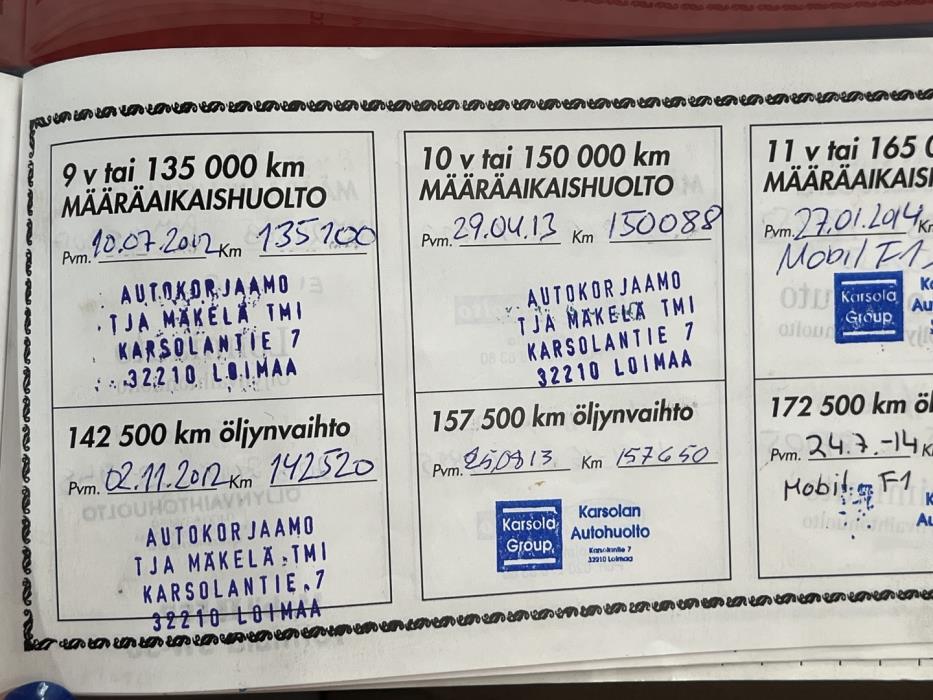 9 v tai 135 000 km
MÄÄRÄAIKAISHUOLTO
Pvm. 10.07.2012 Km 135100
AUTOKORJAAMO
TJA MÄKELÄ TMI
KARSOLANTIE 7
32210 LOIMAA
142 500 km öljynvaihto
Pvm. 02.11.2012 Km 142520
AUTOKORJAAMO
TJA MÄKELÄ TMI
KARSOLANTIE 7
32210 LOIMAA
10 v tai 150 000 km
MÄÄRÄAIKAISHUOLTO
Pvm. 29.04.13 Km 150088
AUTOKORJAAMO
TJA MÄKELÄ TMI
KARSOLANTIE 7
32210 LOIMAA
157 500 km öljynvaihto
Pvm. 25.09.13 Km 157650
Karsola
Group
Karsolan
Autohuolto
Karsolantie 7
32210 Loimaa
11 v tai 165 0
MÄÄRÄAIKAIS
Pvm. 27.01.2014 Km
Mobil F1
Karsola
Group
Ka
Au
172 500 km öl
Pvm. 24.7.-14 K
Mobil F1
K
Au